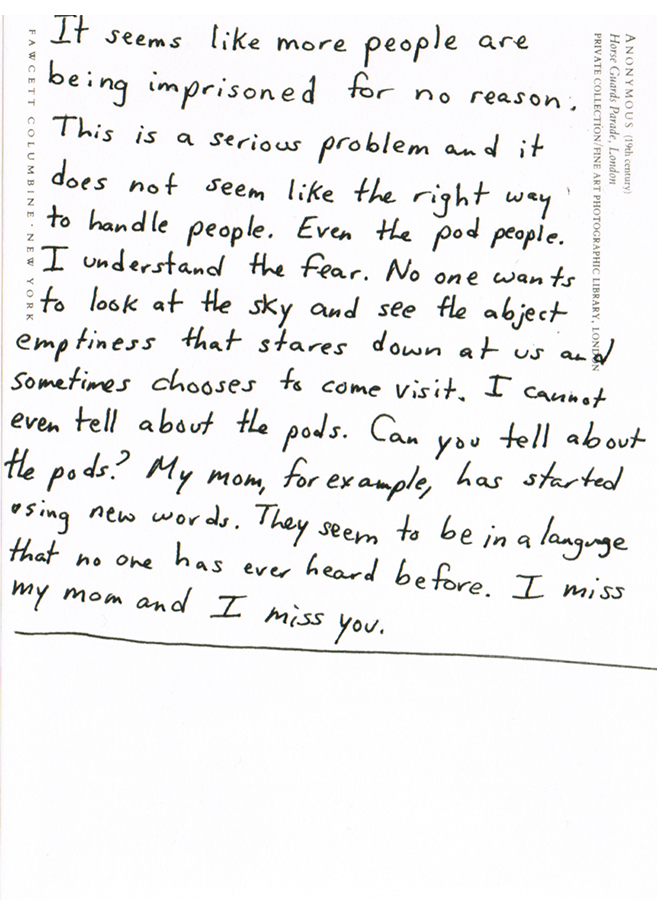 It seems like more people are
being imprisoned for no reason.
This is a serious problem and it
does not seem like the right way
to handle people. Even the pod people.
I understand the fear. No one wants
to look at the sky and see the abject
emptiness that stares down at us and
sometimes chooses to come visit. I cannot
even tell about the pods. Can you tell about
the pods? My mom, for example, has started
using new words. They seem to be in a language
that no one has ever heard before. I miss
my mom and I miss you.
FAWCETT COLUMBINE · NEW YORK
ANONYMOUS (19th century)
Horse Guards Parade, London
PRIVATE COLLECTION/FINE ART PHOTOGRAPHIC LIBRARY, LONDON